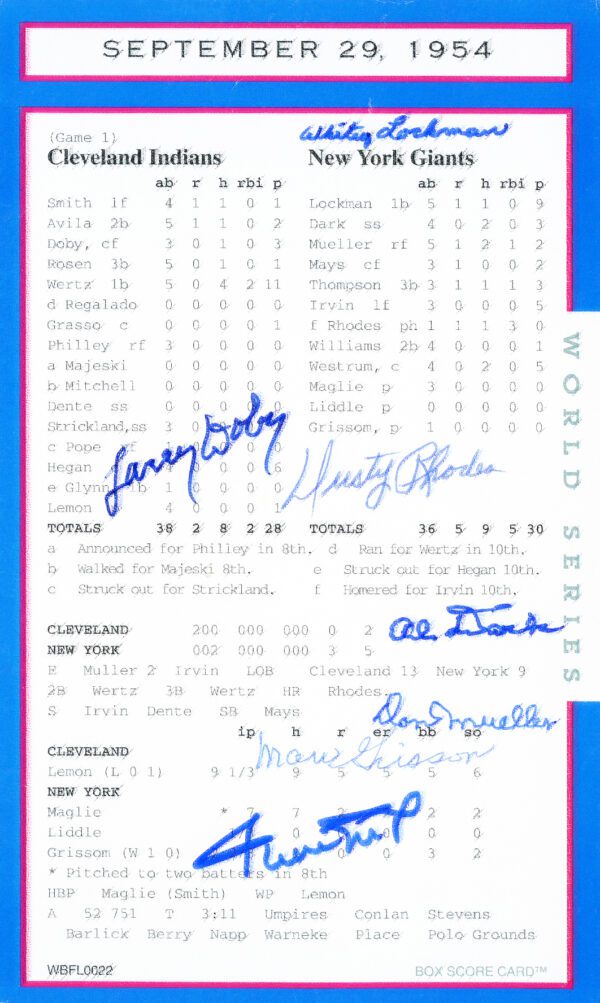 SEPTEMBER 29, 1954
(Game 1)
Whitey Lockman
Cleveland Indians
ab r h rbi p
Smith lf 4 1 1 0 1
Avila 2b 5 1 1 0 2
Doby, cf 3 0 1 0 3
Rosen 3b 5 0 1 0 1
Wertz 1b 5 0 4 2 11
d Regalado 0 0 0 0 0
Grasso c 0 0 0 0 1
Philley rf 3 0 0 0 0
a Majeski 0 0 0 0 0
b Mitchell 0 0 0 0 0
Dente ss 0 0 0 0 0
Strickland,ss 3 0
c Pope rf
Hegan 0 6
e Glynn 1b 1 0 0 0 0
Lemon 4 0 0 0 1
TOTALS 38 2 8 2 28
Larry Doby
New York Giants
ab r h rbi p
Lockman 1b 5 1 1 0 9
Dark ss 4 0 2 0 3
Mueller rf 5 1 2 1 2
Mays cf 3 1 0 0 2
Thompson 3b 3 1 1 1 3
Irvin lf 3 0 0 0 5
f Rhodes ph 1 1 1 3 0
Williams 2b 4 0 0 0 1
Westrum, c 4 0 2 0 5
Maglie p 3 0 0 0 0
Liddle p 0 0 0 0 0
Grissom, p 1 0 0 0 0
Dusty Rhodes
TOTALS 36 5 9 5 30
a Announced for Philley in 8th. d Ran for Wertz in 10th.
b Walked for Majeski 8th. e Struck out for Hegan 10th.
c Struck out for Strickland. f Homered for Irvin 10th.
CLEVELAND 200 000 000 0 2
NEW YORK 002 000 000 3 5
Al Dark
E Muller 2 Irvin LOB Cleveland 13 New York 9
2B Wertz 3B Wertz HR Rhodes.
S Irvin Dente SB Mays
Don Mueller
ip h r er bb so
CLEVELAND
Marv Grissom
Lemon (L 0 1) 9 1/3 9 5 5 5 6
NEW YORK
Maglie * 7 7 2 2 2
Liddle 0 0 0 0
Grissom (W 1 0) 0 0 3 2
Willie Mays
* Pitched to two batters in 8th
HBP Maglie (Smith) WP Lemon
A 52 751 T 3:11 Umpires Conlan Stevens
Barlick Berry Napp Warneke Place Polo Grounds
WBFL0022
BOX SCORE CARD™
WORLD SERIES